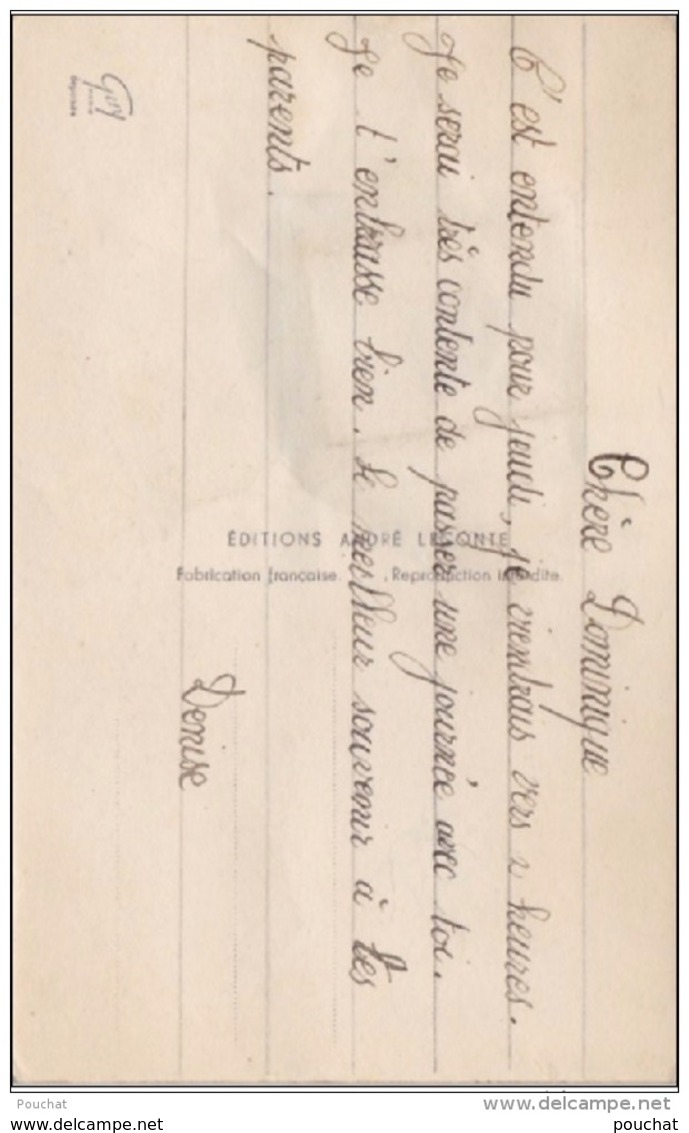 Chère Dominique
C'est entendu pour jeudi, je viendrais vers 2 heures.
Je serai très contente de passer une journée avec toi.
Je t'embrasse bien. Le meilleur souvenir à tes
parents.
Denise
ÉDITIONS ANDRÉ LECONTE
Fabrication française. Reproduction interdite.
Guy
Pouchat
www.delcampe.net
pouchat
www.delcampe.net
pouchat